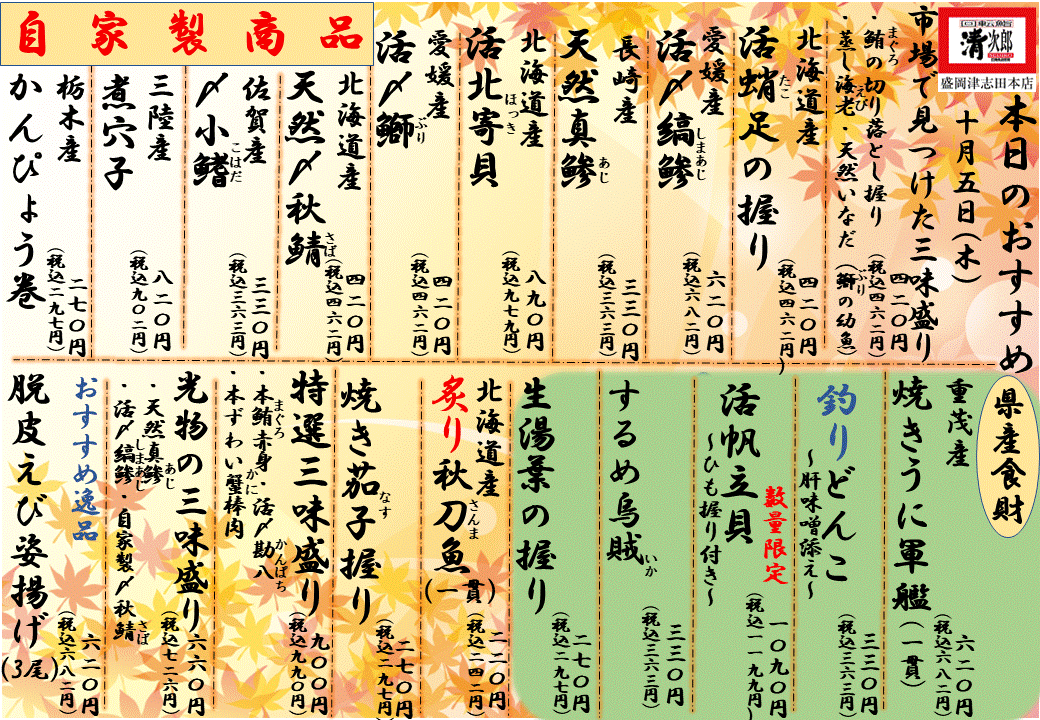 回転鮨
清次郎
盛岡津志田本店
本日のおすすめ
十月五日(木)
市場で見つけた三味盛り
・鮪の切り落とし握り
まぐろ
・蒸し海老・天然いなだ(鰤の幼魚)
えび
ぶり
四二〇円
(税込四六二円)
北海道産
活蛸足の握り
たこ
四二〇円
(税込四六二円)
愛媛産
活〆縞鯵
しまあじ
六二〇円
(税込六八二円)
長崎産
天然真鯵
あじ
三三〇円
(税込三六三円)
北海道産
活北寄貝
ほっき
八九〇円
(税込九七九円)
愛媛産
活〆鰤
ぶり
四二〇円
(税込四六二円)
自家製商品
北海道産
天然〆秋鯖
さば
四二〇円
(税込四六二円)
佐賀産
〆小鰭
こはだ
三三〇円
(税込三六三円)
三陸産
煮穴子
八二〇円
(税込九〇二円)
栃木産
かんぴょう巻
二七〇円
(税込二九七円)
県産食財
重茂産
焼きうに軍艦(一貫)
六二〇円
(税込六八二円)
釣りどんこ
~肝味噌添え~
三三〇円
(税込三六三円)
数量限定
活帆立貝
~ひも握り付き~
一〇九〇円
(税込一一九九円)
するめ烏賊
いか
三三〇円
(税込三六三円)
生湯葉の握り
二七〇円
(税込二九七円)
北海道産
炙り秋刀魚(一貫)
さんま
二二〇円
(税込二四二円)
焼き茄子握り
なす
二七〇円
(税込二九七円)
特選三味盛り
・本鮪赤身・活〆勘八
まぐろ
かんぱち
・本ずわい蟹棒肉
かに
九〇〇円
(税込九九〇円)
光物の三味盛り
・天然真鯵
あじ
・活〆縞鯵・自家製〆秋鯖
しまあじ
さば
六六〇円
(税込七二六円)
おすすめ逸品
脱皮えび姿揚げ(3尾)
六二〇円
(税込六八二円)